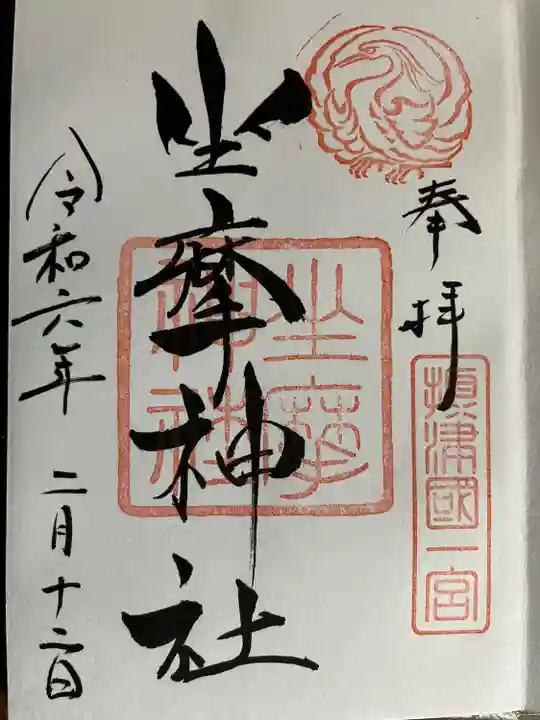 奉拝
攝津國一宮
坐摩神社
坐摩神社
令和六年 二月十二日